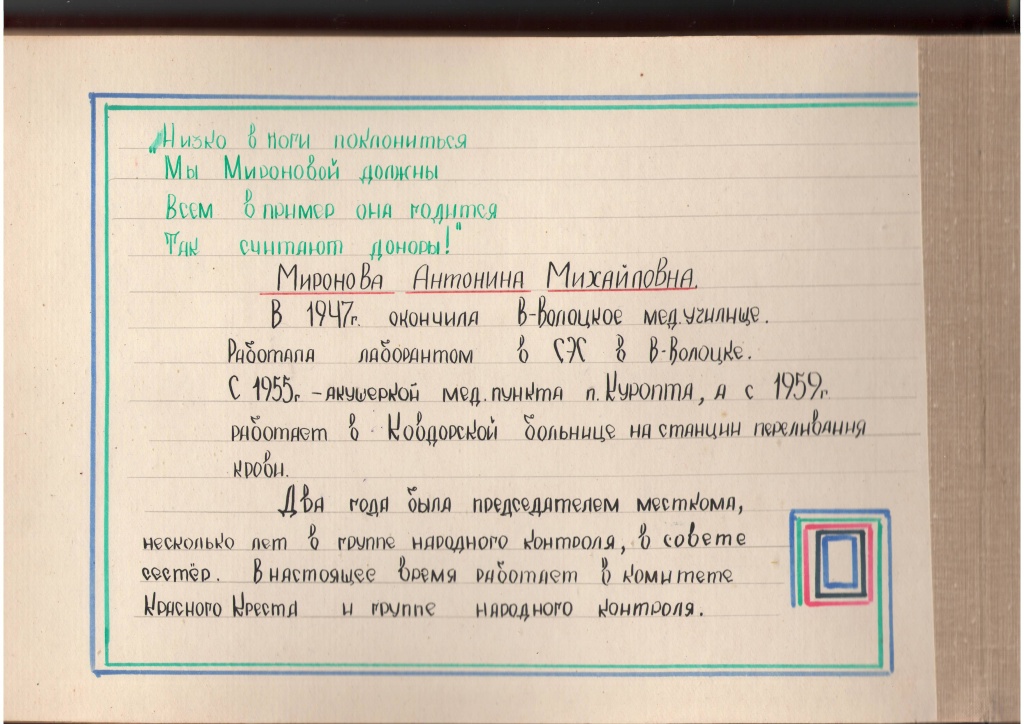 "Низко в ноги поклониться
Мы Мироновой должны
Всем в пример она годится
Так считают доноры!"
Миронова Антонина Михайловна.
В 1947г. окончила В-Волоцкое мед.училище.
Работала лаборантом в СЖ в В-Волоцке.
С 1955г - акушеркой мед.пункта п.Куропта, а с 1959г.
работает в Ковдорской больнице на станции переливания
крови.
Два года была председателем месткома,
несколько лет в группе народного контроля, в совете
сестёр. В настоящее время работает в комитете
Красного Креста и группе народного контроля.